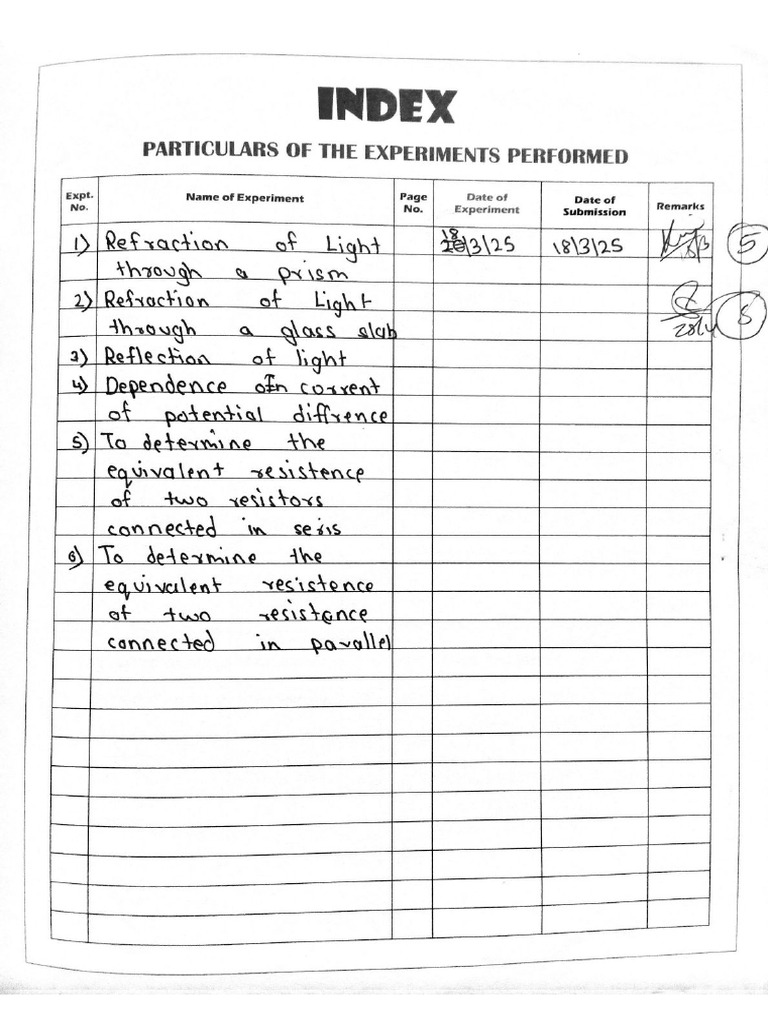 INDEX
PARTICULARS OF THE EXPERIMENTS PERFORMED
Expt. No. Name of Experiment Page No. Date of Experiment Date of Submission Remarks
1) Refraction of Light 18/3/25 18/3/25 5
through a prism
2) Refraction of Light
through a glass slab
3) Reflection of light
4) Dependence of current
of potential diffrence
5) To determine the
equivalent resistence
of two resistors
connected in seris
6) To determine the
equivalent resistence
of two resistance
connected in parallel